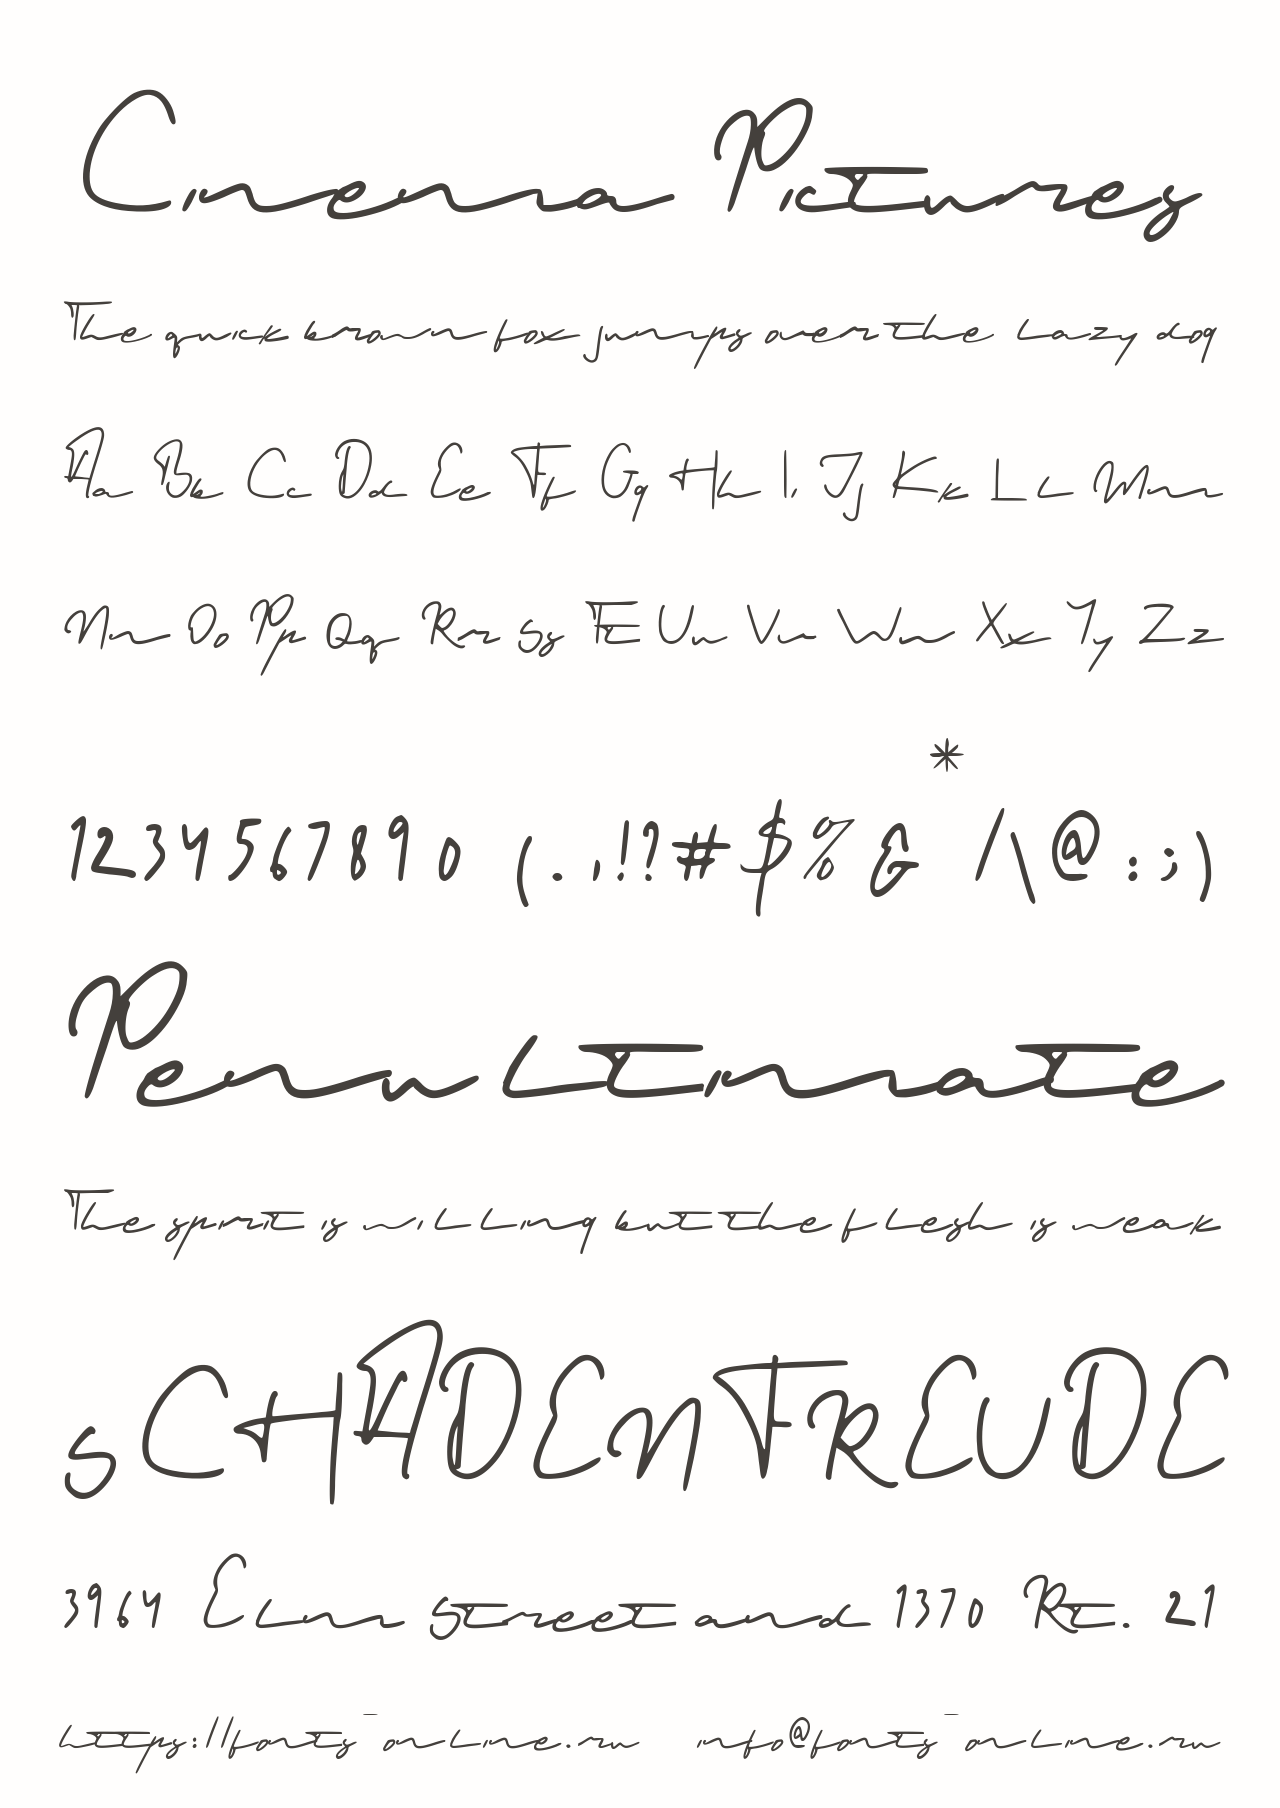 Cinema Pictures
The quick brown fox jumps over the lazy dog
Aa Bb Cc Dd Ee Ff Gg Hh Ii Jj Kk Ll Mm
Nn Oo Pp Qq Rr Ss Tt Uu Vv Ww Xx Yy Zz
1234567890 (.,!?#$%&*/\@:;)
Penultimate
The spirit is willing but the flesh is weak
SCHADENFREUDE
3964 Elm Street and 1370 Rt. 21
https://fonts-online.ru info@fonts-online.ru